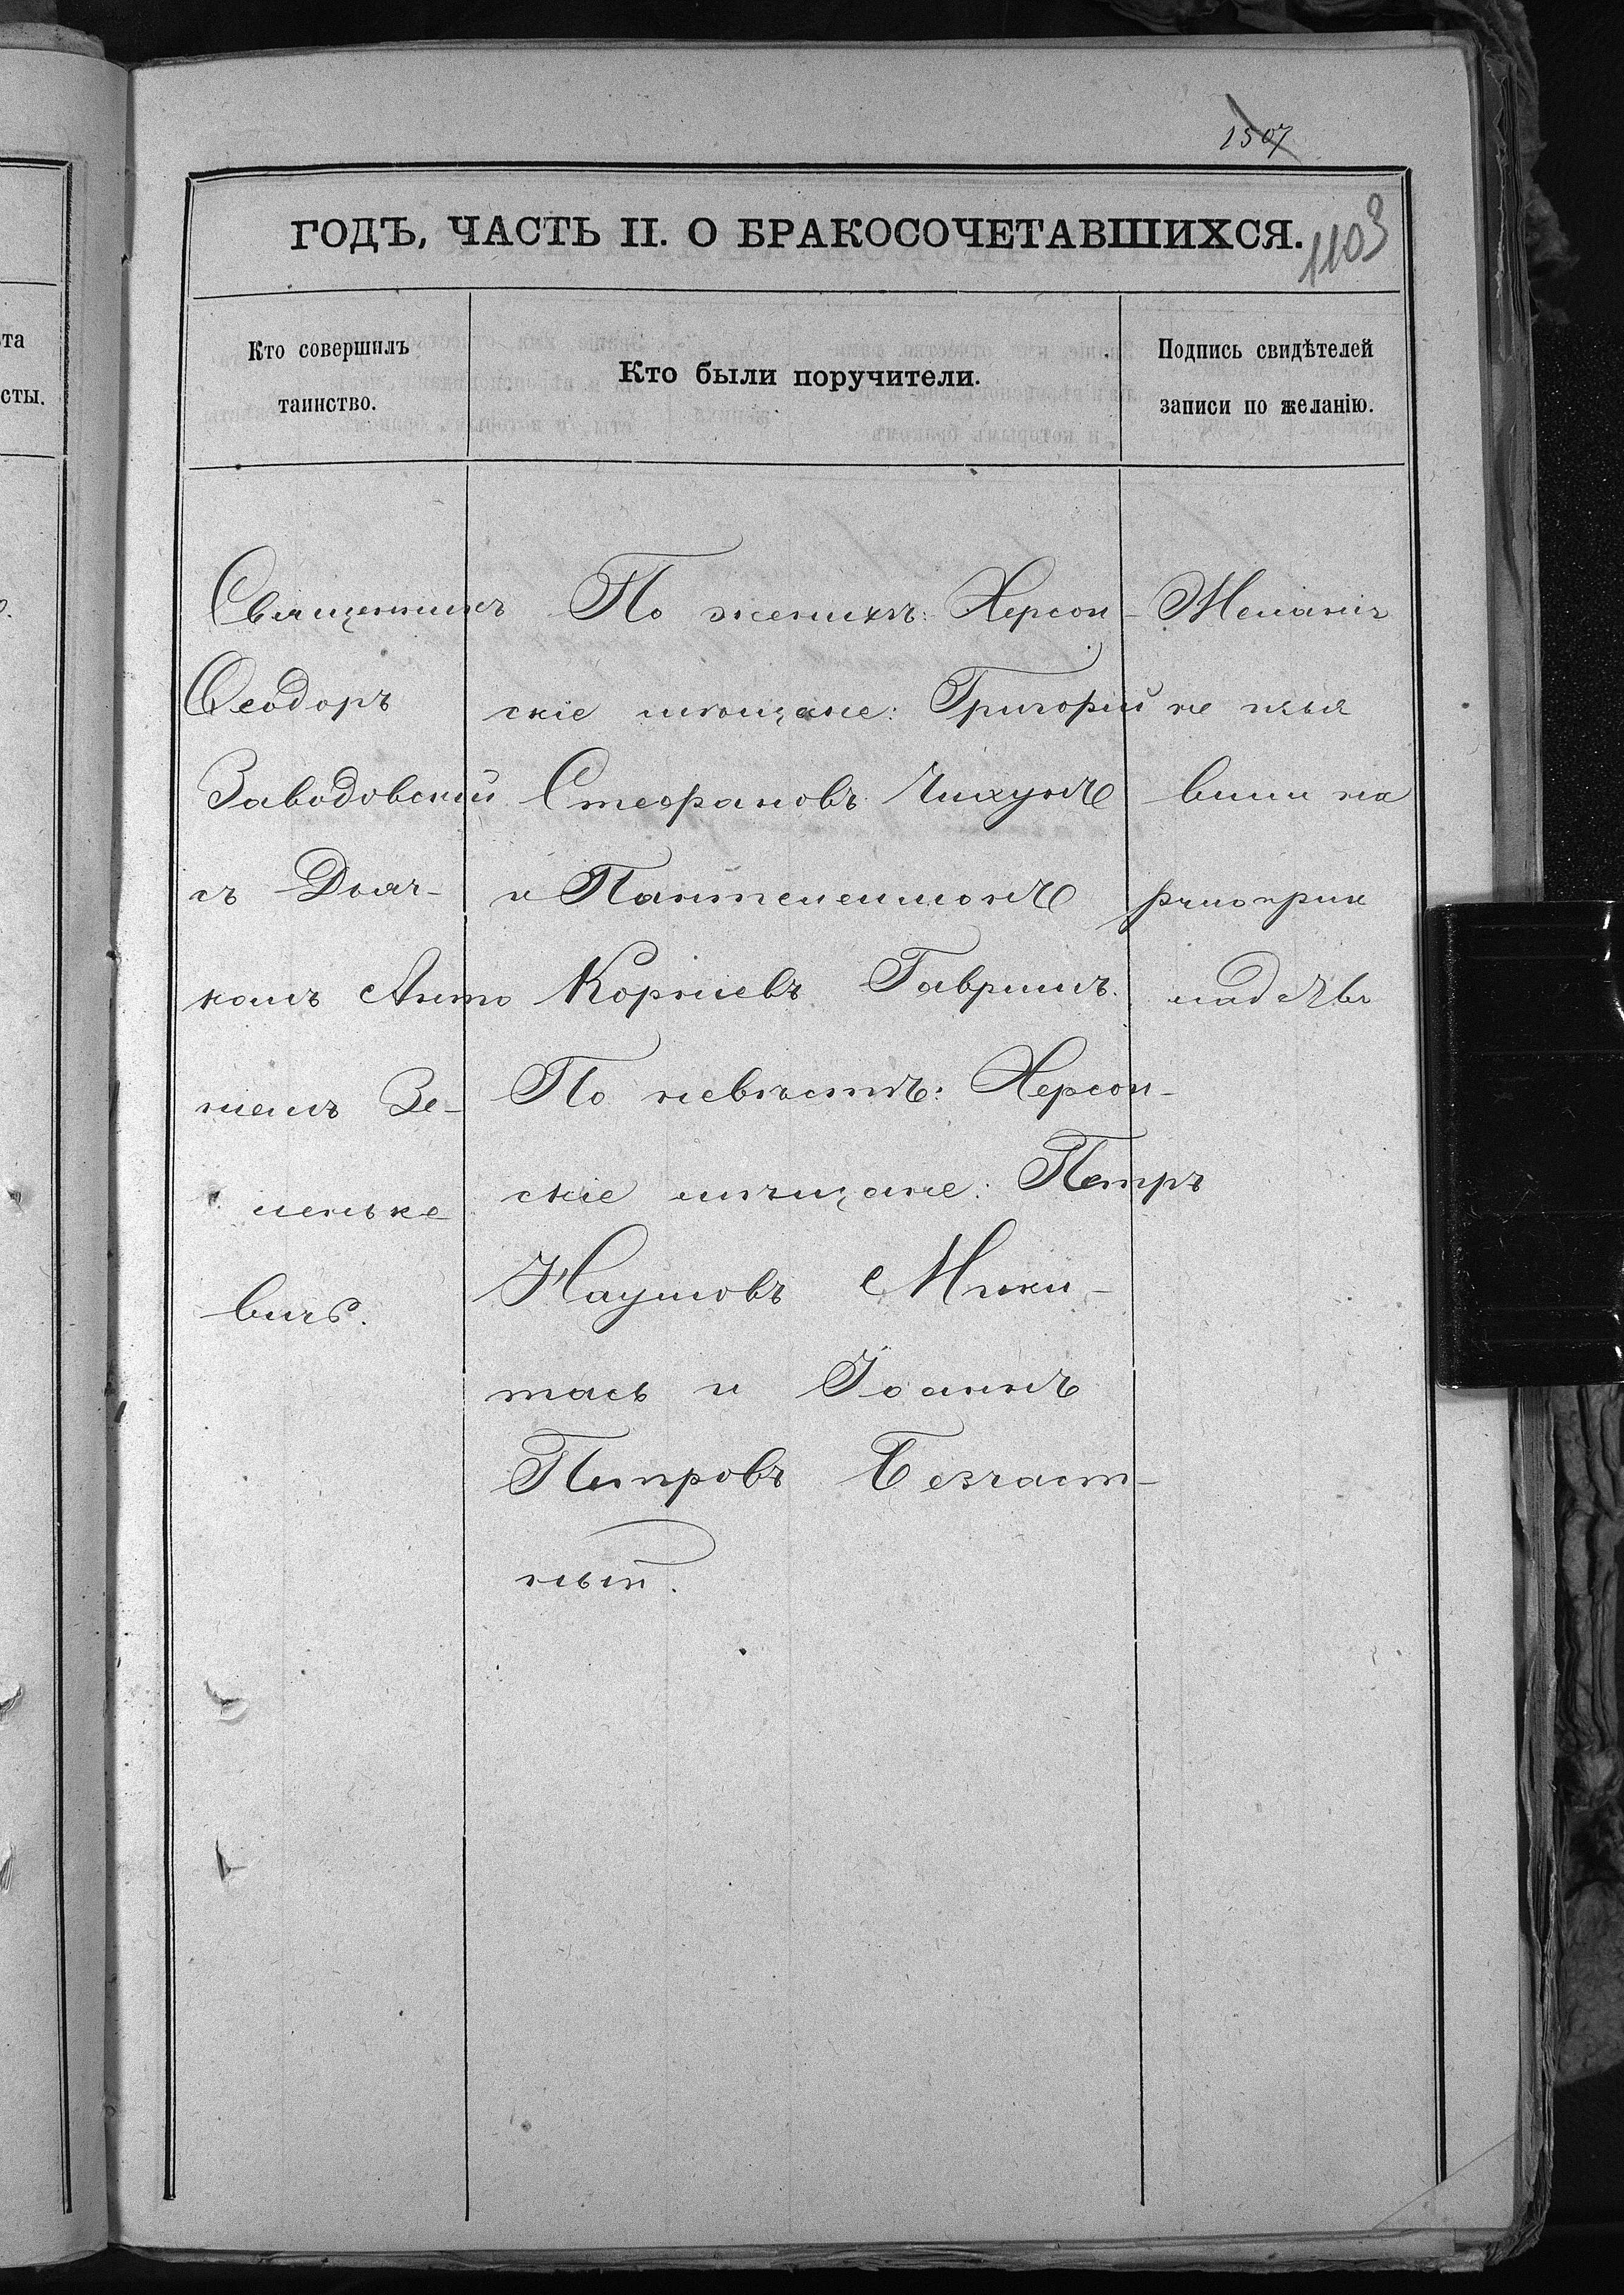 1507
ГОДЪ, ЧАСТЬ II. О БРАКОСОЧЕТАВШИХСЯ.
1103
та
сты.
Кто совершилъ
таинство.
Кто были поручители.
Подпись свидѣтелей
записи по желанію.
Священникъ
Ѳеодоръ
Заводовскій
съ Дьяч-
комъ Анто
ніемъ Зе-
леньке
вичъ.
По женихѣ: Херсон-
скіе мѣщане: Григорій
Стефановъ Чихунъ
и Пантелеимонъ
Корніевъ Гавришъ.
По невѣстѣ: Херсон-
скіе мѣщане: Петръ
Наумовъ Мики-
тась и Іоаннъ
Петровъ Безчаст-
ный.
Желанія
не изъя
вили на